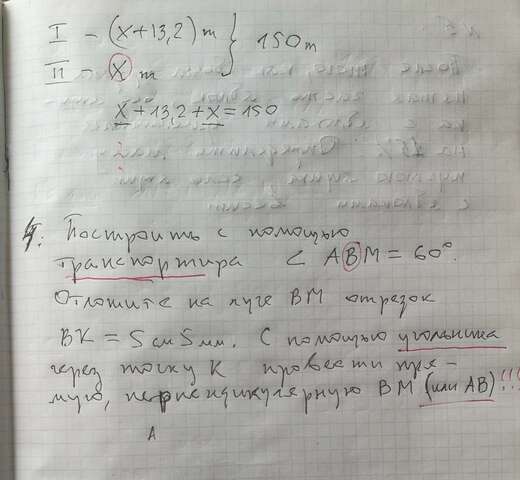 I - (x+13,2) т } 150 т
II - x т
x+13,2+x=150
4. Построить с помощью
транспортира < ABM = 60°.
Отложите на луче BM отрезок
BK = 5 см 5 мм. С помощью угольника
через точку K провести пря-
мую, перпендикулярную BM (или AB)!!!
A